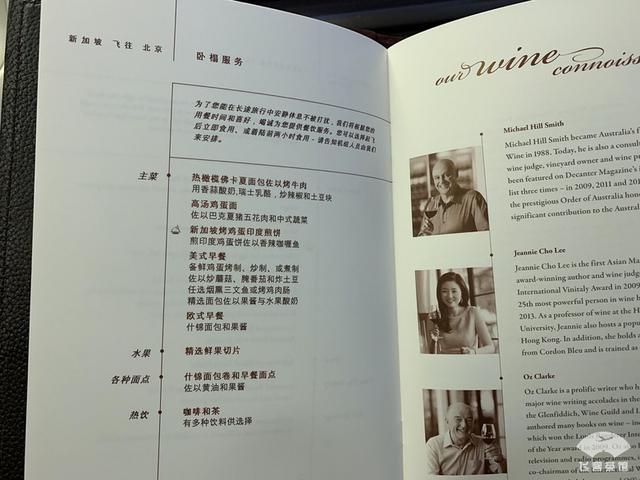 新加坡 飞往 北京
卧榻服务
为了您能在长途旅行中安静休息不被打扰，我们将根据您的
用餐时间和喜好，竭诚为您提供餐饮服务。您可以选择起飞
后立即食用，或着陆前两小时食用 - 请告知机组人员由我们
来安排。
主菜
热橄榄佛卡夏面包佐以烤牛肉
用香蒜酸奶，瑞士乳酪，炒辣椒和土豆块
高汤鸡蛋面
佐以巴克夏猪五花肉和中式蔬菜
新加坡烤鸡蛋印度煎饼
煎印度鸡蛋饼佐以香辣咖喱鱼
美式早餐
备鲜鸡蛋烤制、炒制、或煮制
佐以炒蘑菇、腌番茄和炸土豆
任选烟熏三文鱼或烤鸡肉肠
精选面包佐以果酱与水果酸奶
欧式早餐
什锦面包和果酱
水果
精选鲜果切片
各种面点
什锦面包卷和早餐面点
佐以黄油和果酱
热饮
咖啡和茶
有多种饮料供选择
our wine
connoiss
Michael Hill Smith
Michael Hill Smith became Australia's f
Wine in 1988. Today, he is also a consult
wine judge, vineyard owner and wine p
been featured on Decanter Magazine's
list three times – in 2009, 2011 and 201
the prestigious Order of Australia hono
significant contribution to the Austral
Jeannie Cho Lee
Jeannie Cho Lee is the first Asian Ma
award-winning author and wine judg
International Vinitaly Award in 2009
25th most powerful person in wine h
2013. As a professor of wine at the H
University, Jeannie also hosts a popu
Hong Kong. In addition, she holds a
from Cordon Bleu and is trained as
Oz Clarke
Oz Clarke is a prolific writer who h
major wine writing accolades in the
the Glenfiddich, Wine Guild and L
authored many books on wine – inc
which won the Lou
Inter
of the Year award in 2009. Oz also
television and radio programmes, i
co-chairman of
飞客茶馆